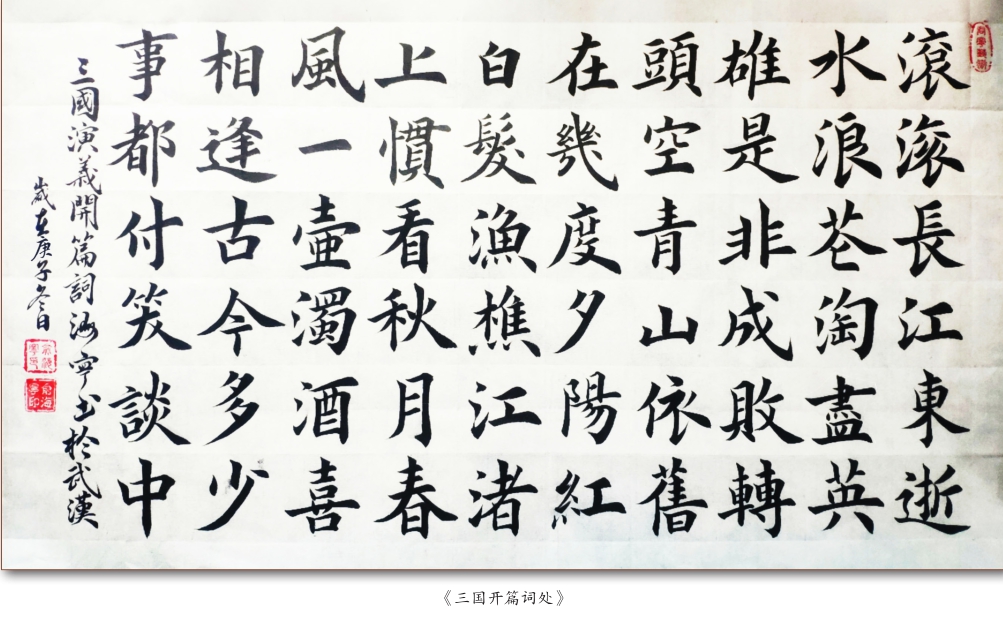 滾滾長江東逝
水浪花淘盡英
雄是非成敗轉
頭空青山依舊
在幾度夕陽紅
白髮漁樵江渚
上慣看秋月春
風一壺濁酒喜
相逢古今多少
事都付笑談中
三國演義開篇詞海寧书於武漢
歲在庚子冬日
《三国开篇词处》